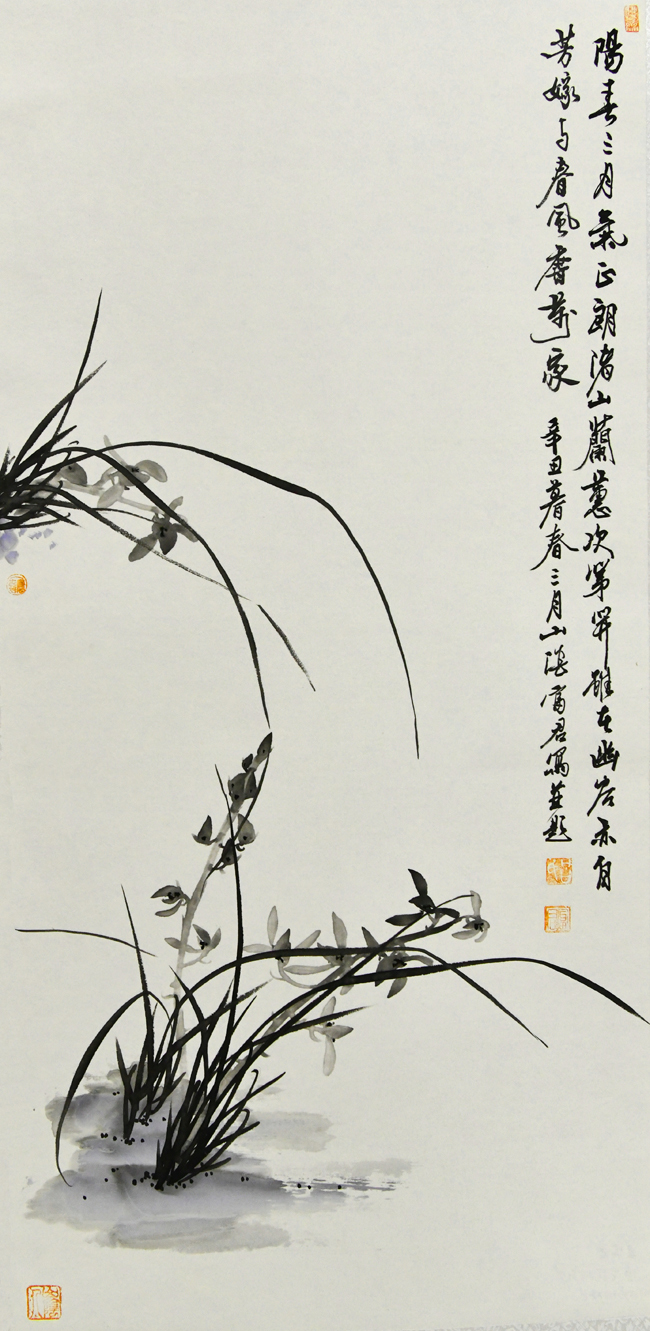 陽春三月氣正朗諸山蘭蕙次第開雖在幽岩亦自
芳嫁与春風香萬家
辛丑暮春三月山海富君寫並題